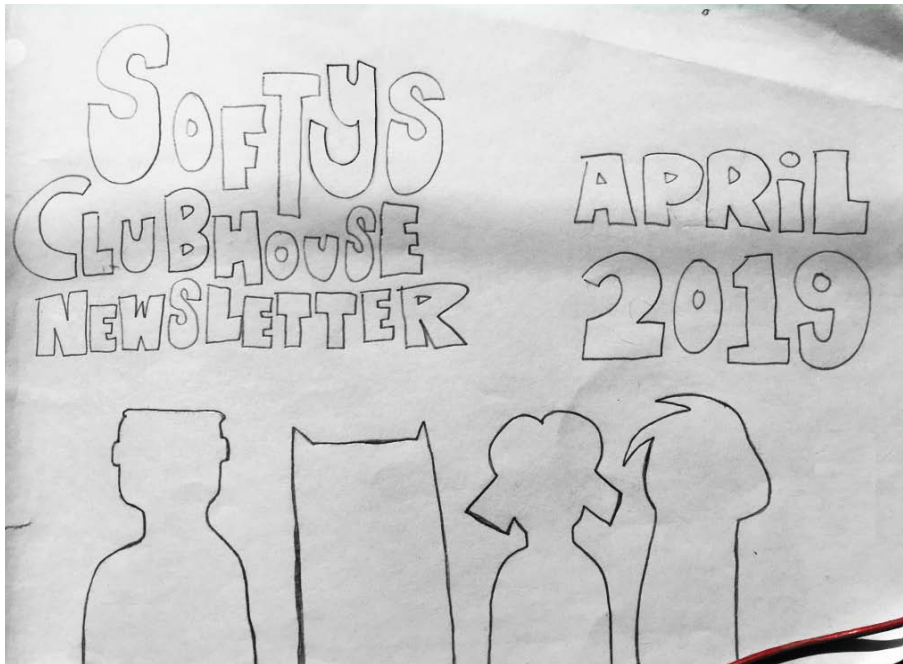 SOFTYS
CLUBHOUSE
NEWSLETTER
APRiL
2019